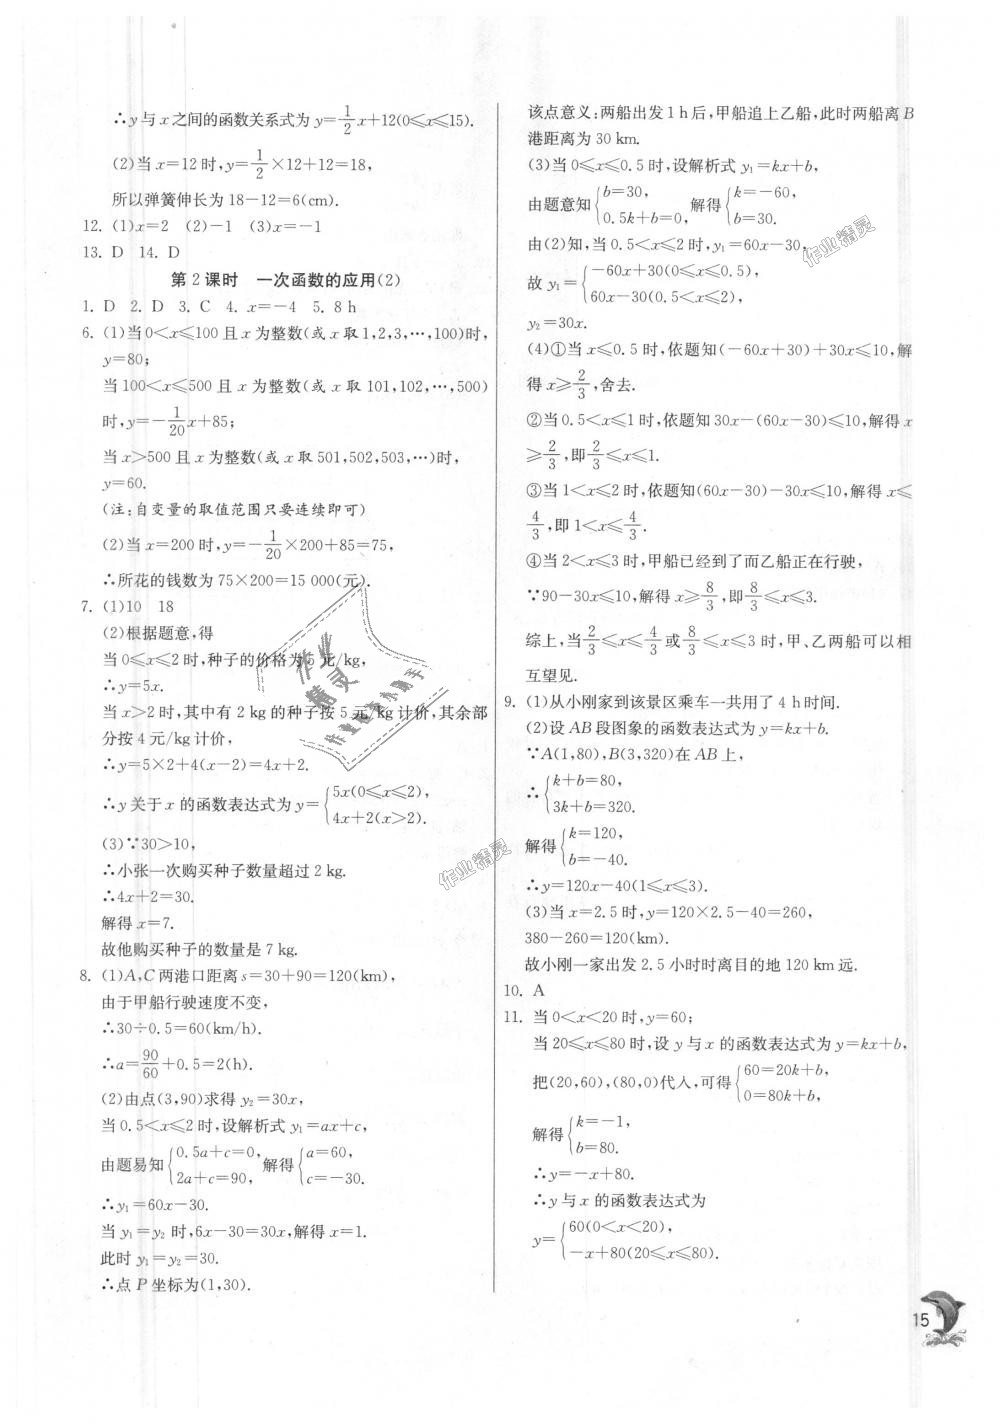 ∴y与x之间的函数关系式为y=1/2x+12(0≤x≤15).
(2)当x=12时,y=1/2×12+12=18,
所以弹簧伸长为18-12=6(cm).
12. (1)x=2 (2)-1 (3)x=-1
13. D 14. D
第2课时 一次函数的应用(2)
1. D 2. D 3. C 4. x=-4 5. 8 h
6. (1)当0<x≤100且x为整数(或x取1,2,3,…,100)时,
y=80;
当100<x≤500且x为整数(或x取101,102,…,500)
时,y=-1/20x+85;
当x>500且x为整数(或x取501,502,503,…)时,
y=60.
(注:自变量的取值范围只要连续即可)
(2)当x=200时,y=-1/20×200+85=75,
∴所花的钱数为75×200=15 000(元).
7. (1)10 18
(2)根据题意,得
当0≤x≤2时,种子的价格为5元/kg,
∴y=5x.
当x>2时,其中有2 kg的种子按5元/kg计价,其余部
分按4元/kg计价,
∴y=5×2+4(x-2)=4x+2.
∴y关于x的函数表达式为y={5x(0≤x≤2),
4x+2(x>2).
(3)∵30>10,
∴小张一次购买种子数量超过2 kg.
∴4x+2=30.
解得x=7.
故他购买种子的数量是7 kg.
8. (1)A,C两港口距离s=30+90=120(km),
由于甲船行驶速度不变,
∴30÷0.5=60(km/h).
∴a=90/60+0.5=2(h).
(2)由点(3,90)求得y₂=30x,
当0.5<x≤2时,设解析式y₁=ax+c,
由题易知{0.5a+c=0, 2a+c=90, 解得{a=60, c=-30.
∴y₁=60x-30.
当y₁=y₂时,6x-30=30x,解得x=1.
此时y₁=y₂=30.
∴点P坐标为(1,30).
该点意义:两船出发1 h后,甲船追上乙船,此时两船离B
港距离为30 km.
(3)当0≤x≤0.5时,设解析式y₁=kx+b,
由题意知{b=30, 0.5k+b=0, 解得{k=-60, b=30.
由(2)知,当0.5<x≤2时,y₁=60x-30,
故y₁={-60x+30(0≤x≤0.5),
60x-30(0.5<x≤2),
y₂=30x.
(4)①当x≤0.5时,依题知(-60x+30)+30x≤10,解
得x≥2/3,舍去.
②当0.5<x≤1时,依题知30x-(60x-30)≤10,解得x
≥2/3,即2/3≤x≤1.
③当1<x≤2时,依题知(60x-30)-30x≤10,解得x≤
4/3,即1<x≤4/3.
④当2<x≤3时,甲船已经到了而乙船正在行驶,
∵90-30x≤10,解得x≥8/3,即8/3≤x≤3.
综上,当2/3≤x≤4/3或8/3≤x≤3时,甲、乙两船可以相
互望见.
9. (1)从小刚家到该景区乘车一共用了4 h时间.
(2)设AB段图象的函数表达式为y=kx+b.
∵A(1,80),B(3,320)在AB上,
∴{k+b=80,
3k+b=320.
解得{k=120,
b=-40.
∴y=120x-40(1≤x≤3).
(3)当x=2.5时,y=120×2.5-40=260,
380-260=120(km).
故小刚一家出发2.5小时时离目的地120 km远.
10. A
11. 当0<x<20时,y=60;
当20≤x≤80时,设y与x的函数表达式为y=kx+b,
把(20,60),(80,0)代入,可得{60=20k+b,
0=80k+b,
解得{k=-1,
b=80.
∴y=-x+80.
∴y与x的函数表达式为
y={60(0<x<20),
-x+80(20≤x≤80).
15
作业精灵
作业精灵